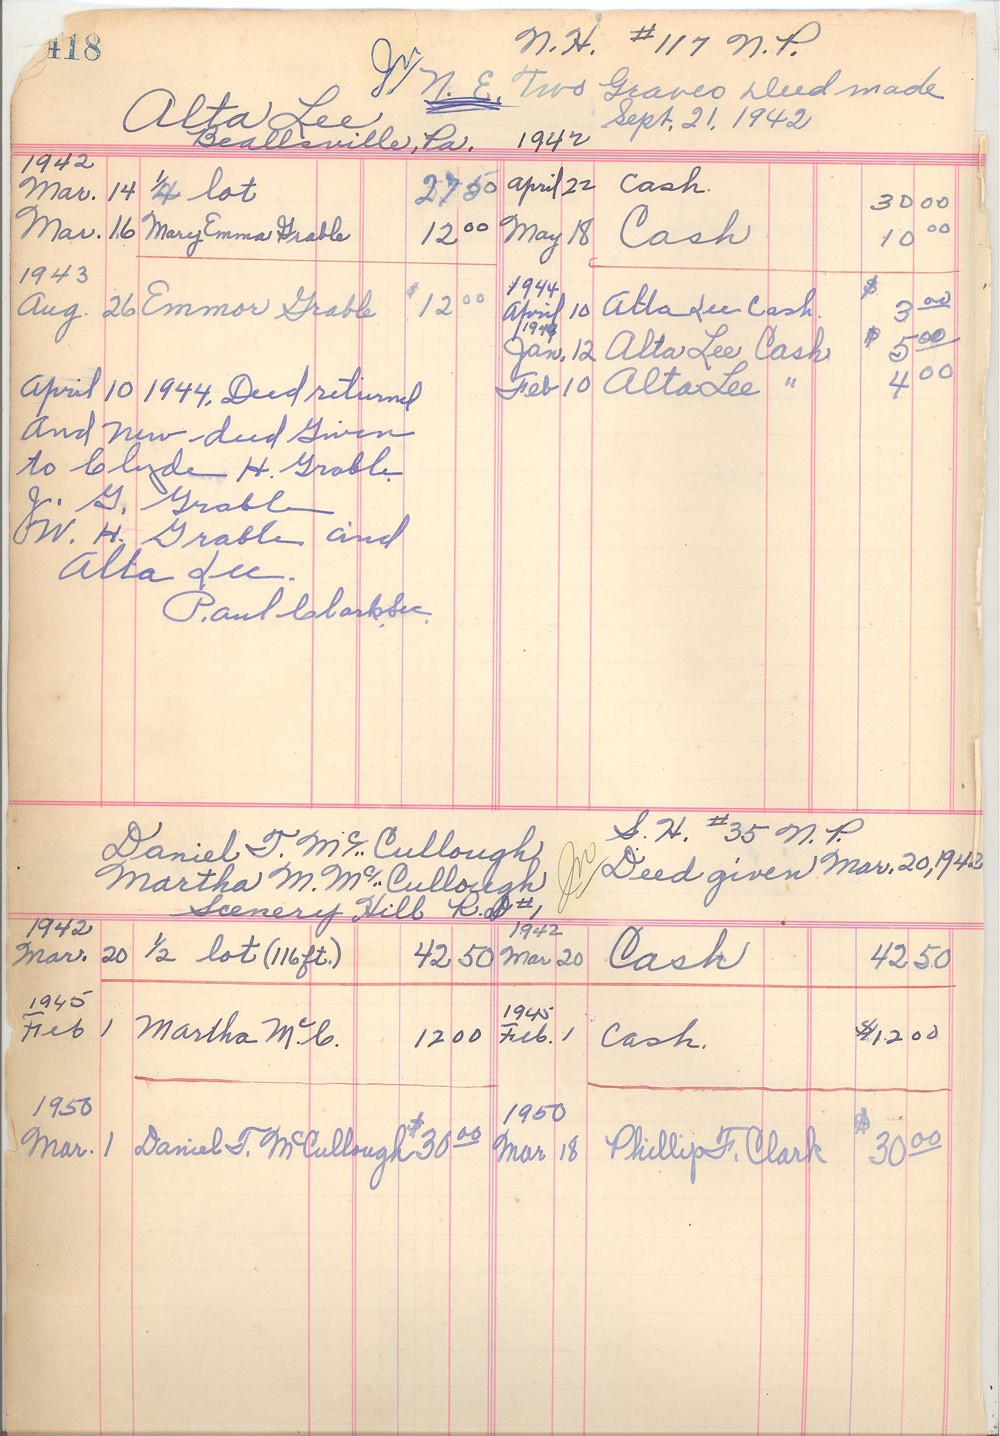 418
N.H. #117 N.P.
N.E. Two Graves Deed made
Sept. 21, 1942
Alta Lee
Beallsville, Pa. 1942
1942
Mar. 14 1/4 lot 27 50 April 22 Cash. 30 00
Mar. 16 Mary Emma Grable 12 00 May 18 Cash 10 00
1943 1944
Aug. 26 Emmor Grable $ 12 00 April 10 Alta Lee Cash. $ 3 00
Jan. 12 Alta Lee Cash $ 5 00
Feb 10 Alta Lee " 4 00
April 10 1944, Deed returned
and new deed Given
to Clyde H. Grable
J. G. Grable
W. H. Grable and
Alta Lee.
Paul Clark, Sec.
S. H. #35 N.P.
Daniel T. McCullough
Deed given Mar. 20, 1942
Martha M. McCullough
Scenery Hill R.D #1
1942 1942
Mar. 20 1/2 lot (116 ft.) 42 50 Mar 20 Cash 42 50
1945 1945
Feb 1 Martha McC. 12 00 Feb. 1 Cash. $12 00
1950 1950
Mar. 1 Daniel T. McCullough $30 00 Mar 18 Phillip F. Clark $ 30 00